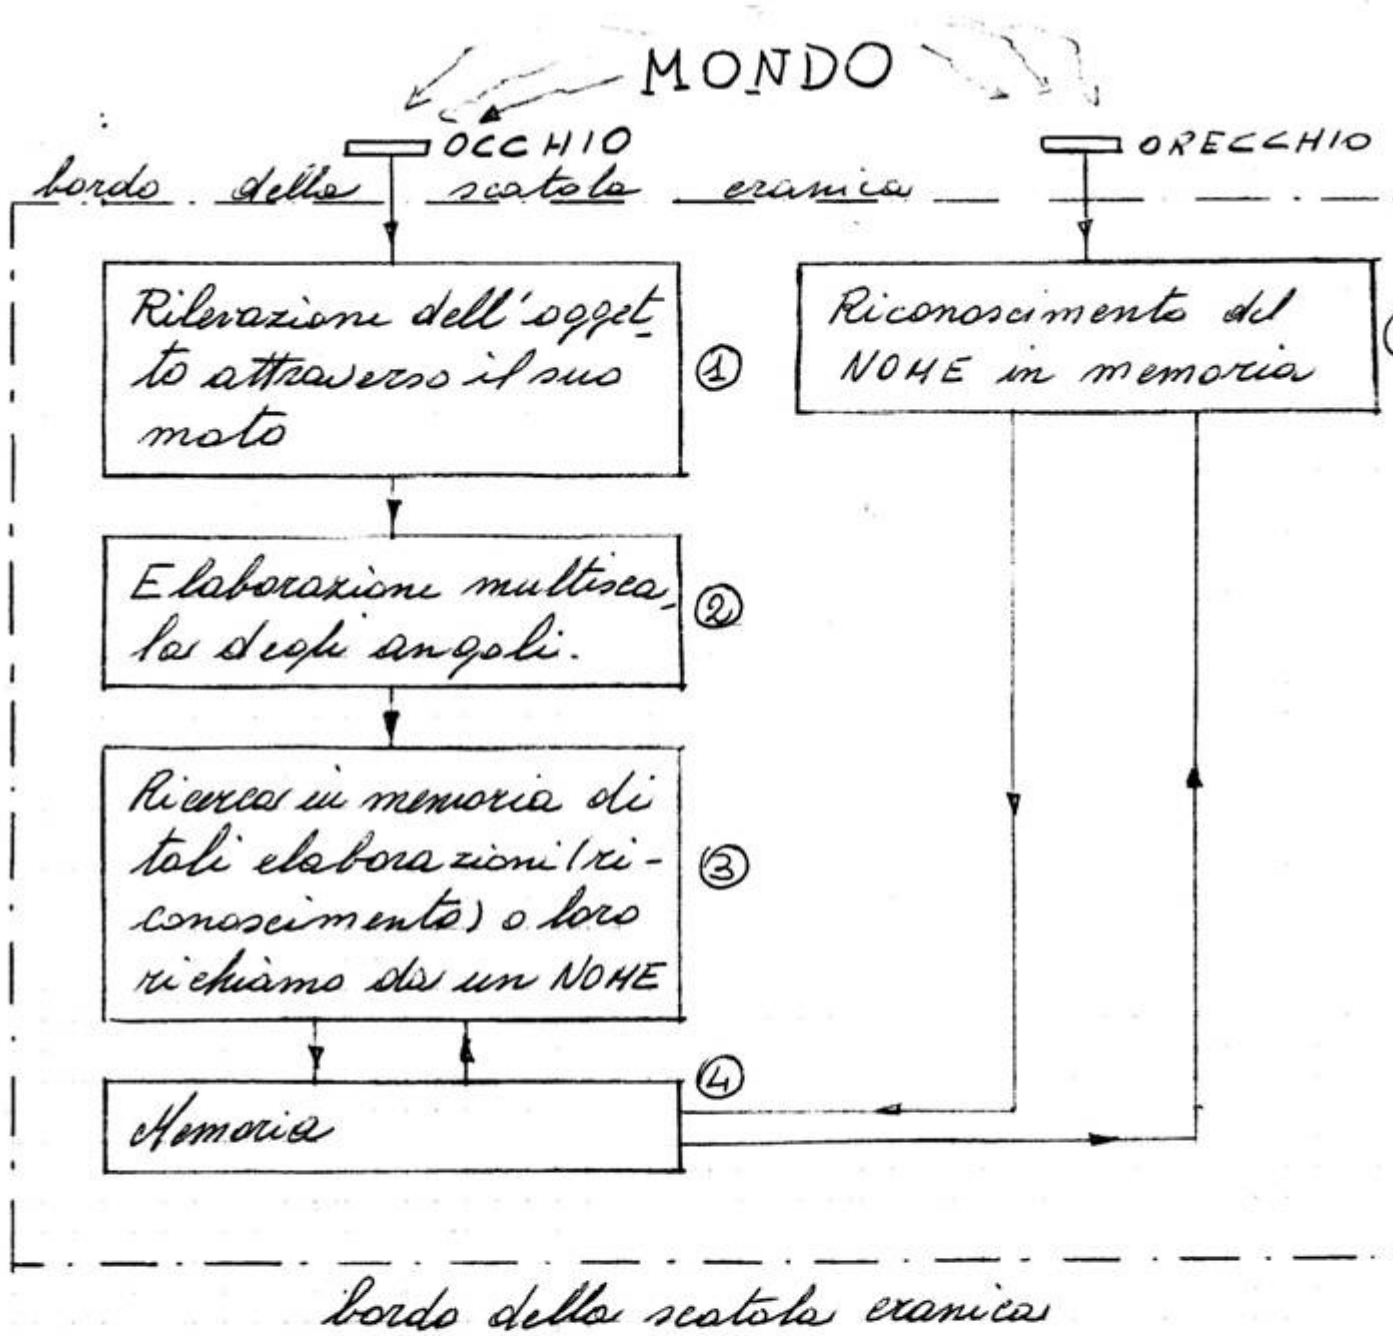 MONDO
OCCHIO
ORECCHIO
bordo della scatola cranica
Rilevazione dell'ogget-
to attraverso il suo
moto
1
Riconoscimento del
NOME in memoria
Elaborazione multisca-
la degli angoli.
2
Ricerca in memoria di
tali elaborazioni (ri-
conoscimento) o loro
richiamo da un NOME
3
Memoria
4
bordo della scatola cranica